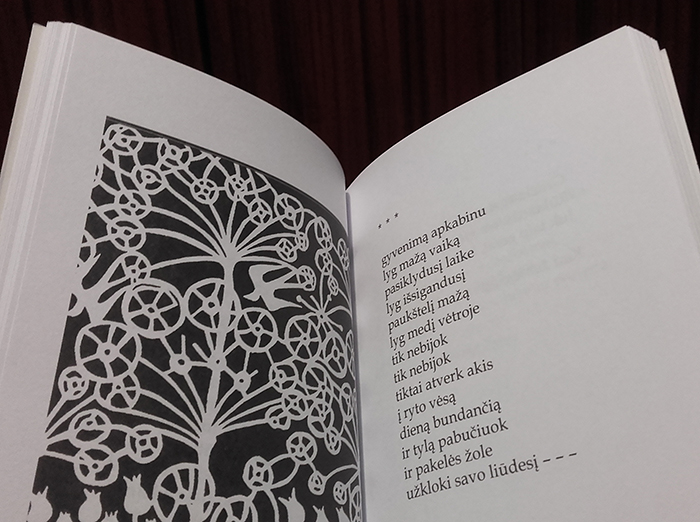 * * *
gyvenimą apkabinu
lyg mažą vaiką
pasiklydusį laike
lyg išsigandusį
paukštelį mažą
lyg medį vėtroje
tik nebijok
tik nebijok
tiktai atverk akis
į ryto vėsą
dieną bundančią
ir tylą pabučiuok
ir pakelės žole
užkloki savo liūdesį – – –